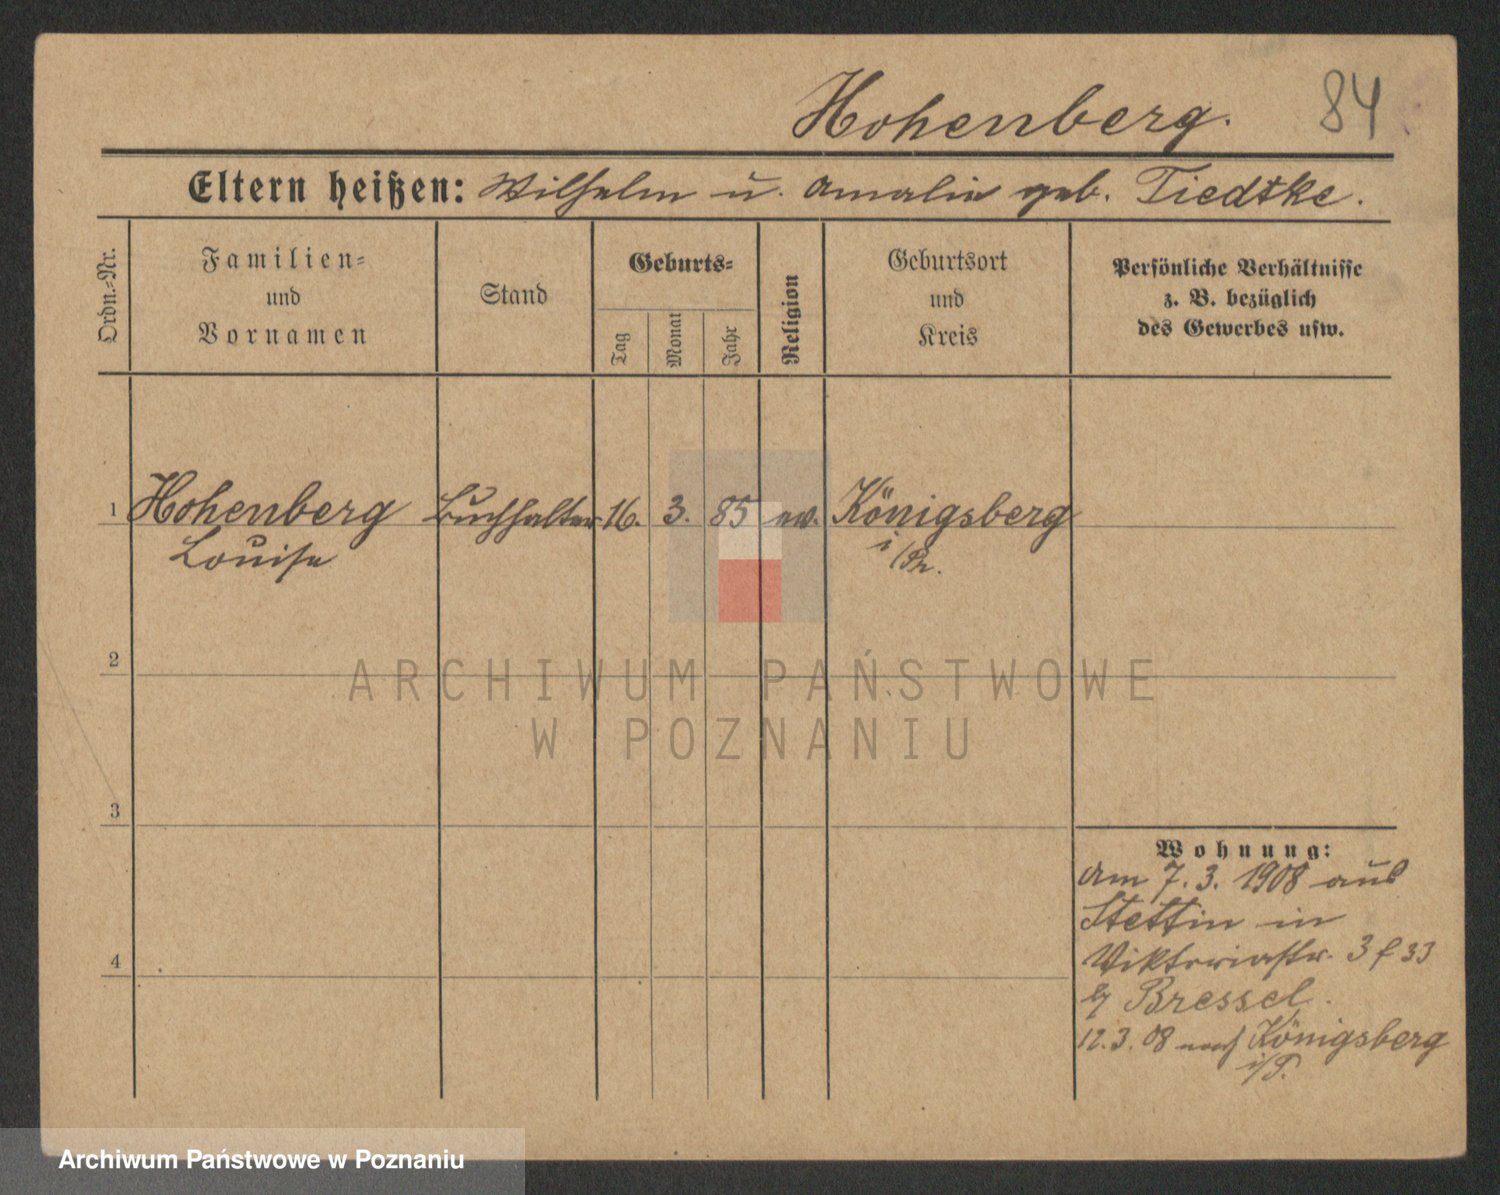 Hohenberg. 84
Eltern heißen: Wilhelm u. Amalie geb. Tiedtke.
Ordn.-Nr.
Familien-
und
Vornamen
Stand
Geburts-
Tag
Monat
Jahr
Religion
Geburtsort
und
Kreis
Persönliche Verhältnisse
z. B. bezüglich
des Gewerbes usw.
1 Hohenberg Buchhalter 16. 3. 85 ev. Königsberg
Louise i/Pr.
2
ARCHIWUM PAŃSTWOWE
W POZNANIU
3
Wohnung:
am 7. 3. 1908 aus
Stettin in
Viktoriastr. 33
4
Bressel.
12. 3. 08 nach Königsberg
i/P.
Archiwum Państwowe w Poznaniu